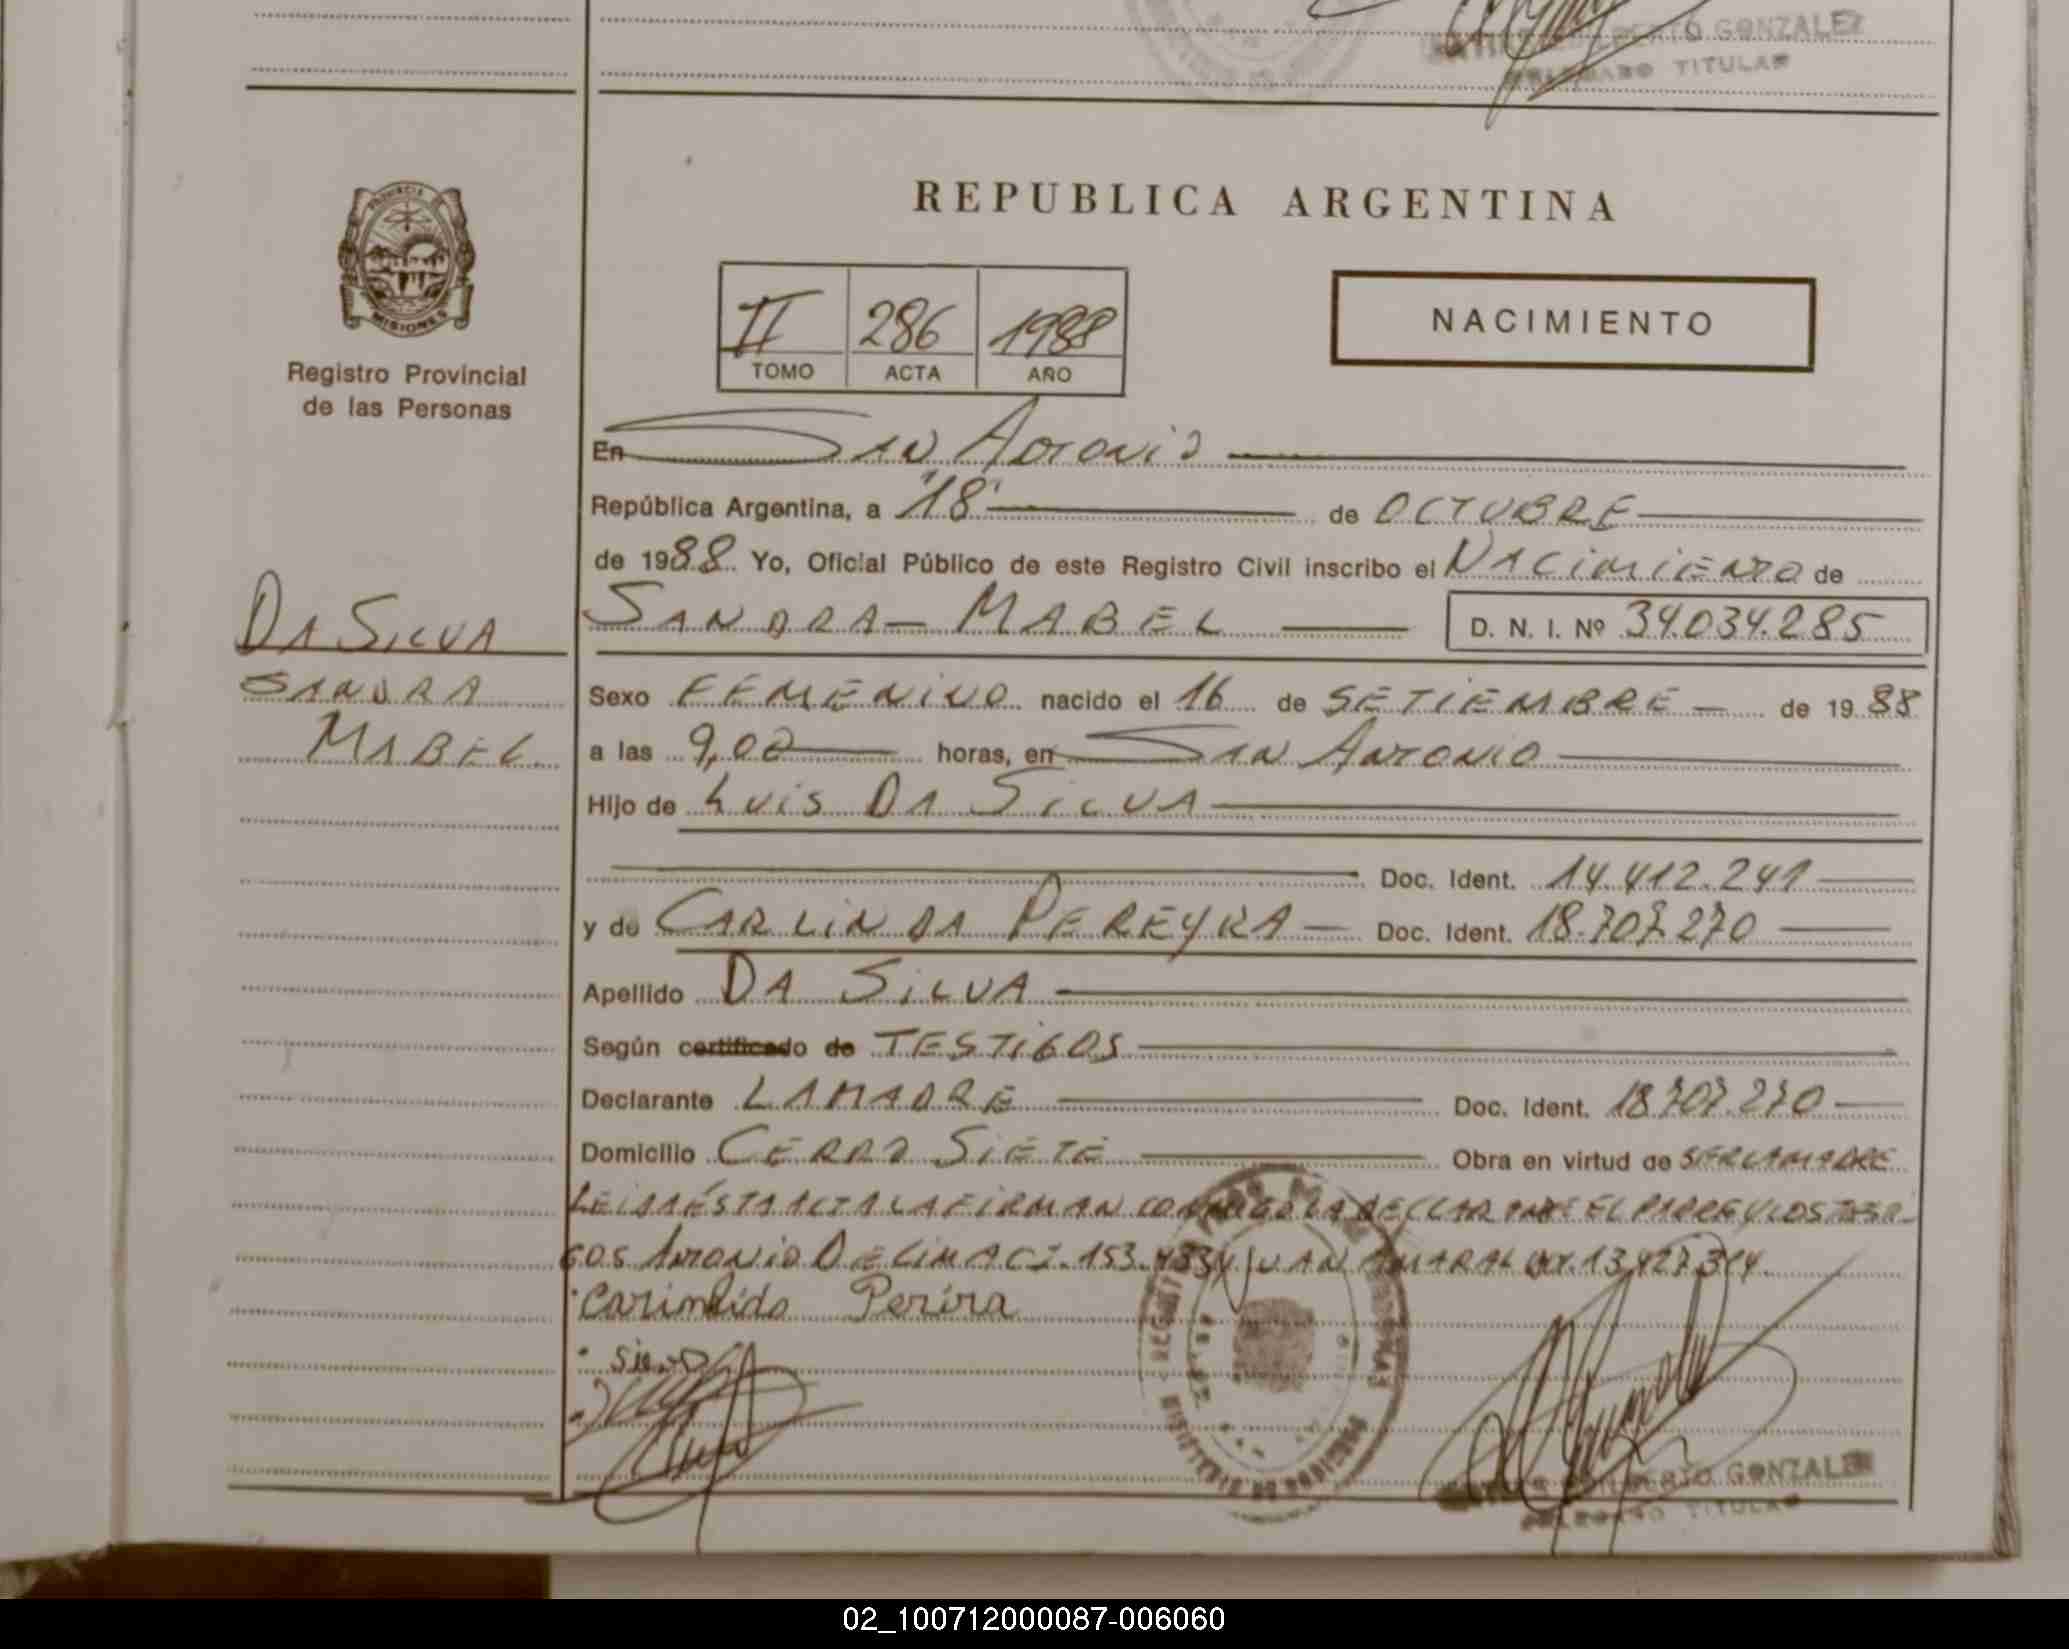 GILBERTO GONZALEZ
DELEGADO TITULAR
REPUBLICA ARGENTINA
PROVINCIA DE
MISIONES
Registro Provincial
de las Personas
II 286 1988
TOMO ACTA AÑO
NACIMIENTO
En San Antonio
República Argentina, a "18" de OCTUBRE
de 1988 Yo, Oficial Público de este Registro Civil inscribo el NACIMIENTO de
DA SILVA
SANDRA
MABEL
SANDRA - MABEL D. N. I. Nº 34.034.285
Sexo FEMENINO nacido el 16 de SETIEMBRE - de 1988
a las 9,00 horas, en SAN ANTONIO
Hijo de LUIS DA SILVA
Doc. Ident. 14.412.241
y de CARLINDA PEREYRA - Doc. Ident. 18.707.270
Apellido DA SILVA
Según certificado de TESTIGOS
Declarante LA MADRE Doc. Ident. 18.707.270
Domicilio CERRO SIETE Obra en virtud de SER LA MADRE
LEIDA ÉSTA ACTA LA FIRMAN CONMIGO LA DECLARANTE EL PADRE Y LOS TESTI-
GOS ANTONIO DE LIMA C.I. 153.433 Y JUAN AMARAL DNI. 13.427.314.
Carimlida Perira
GILBERTO GONZALEZ
DELEGADO TITULAR
02_100712000087-006060